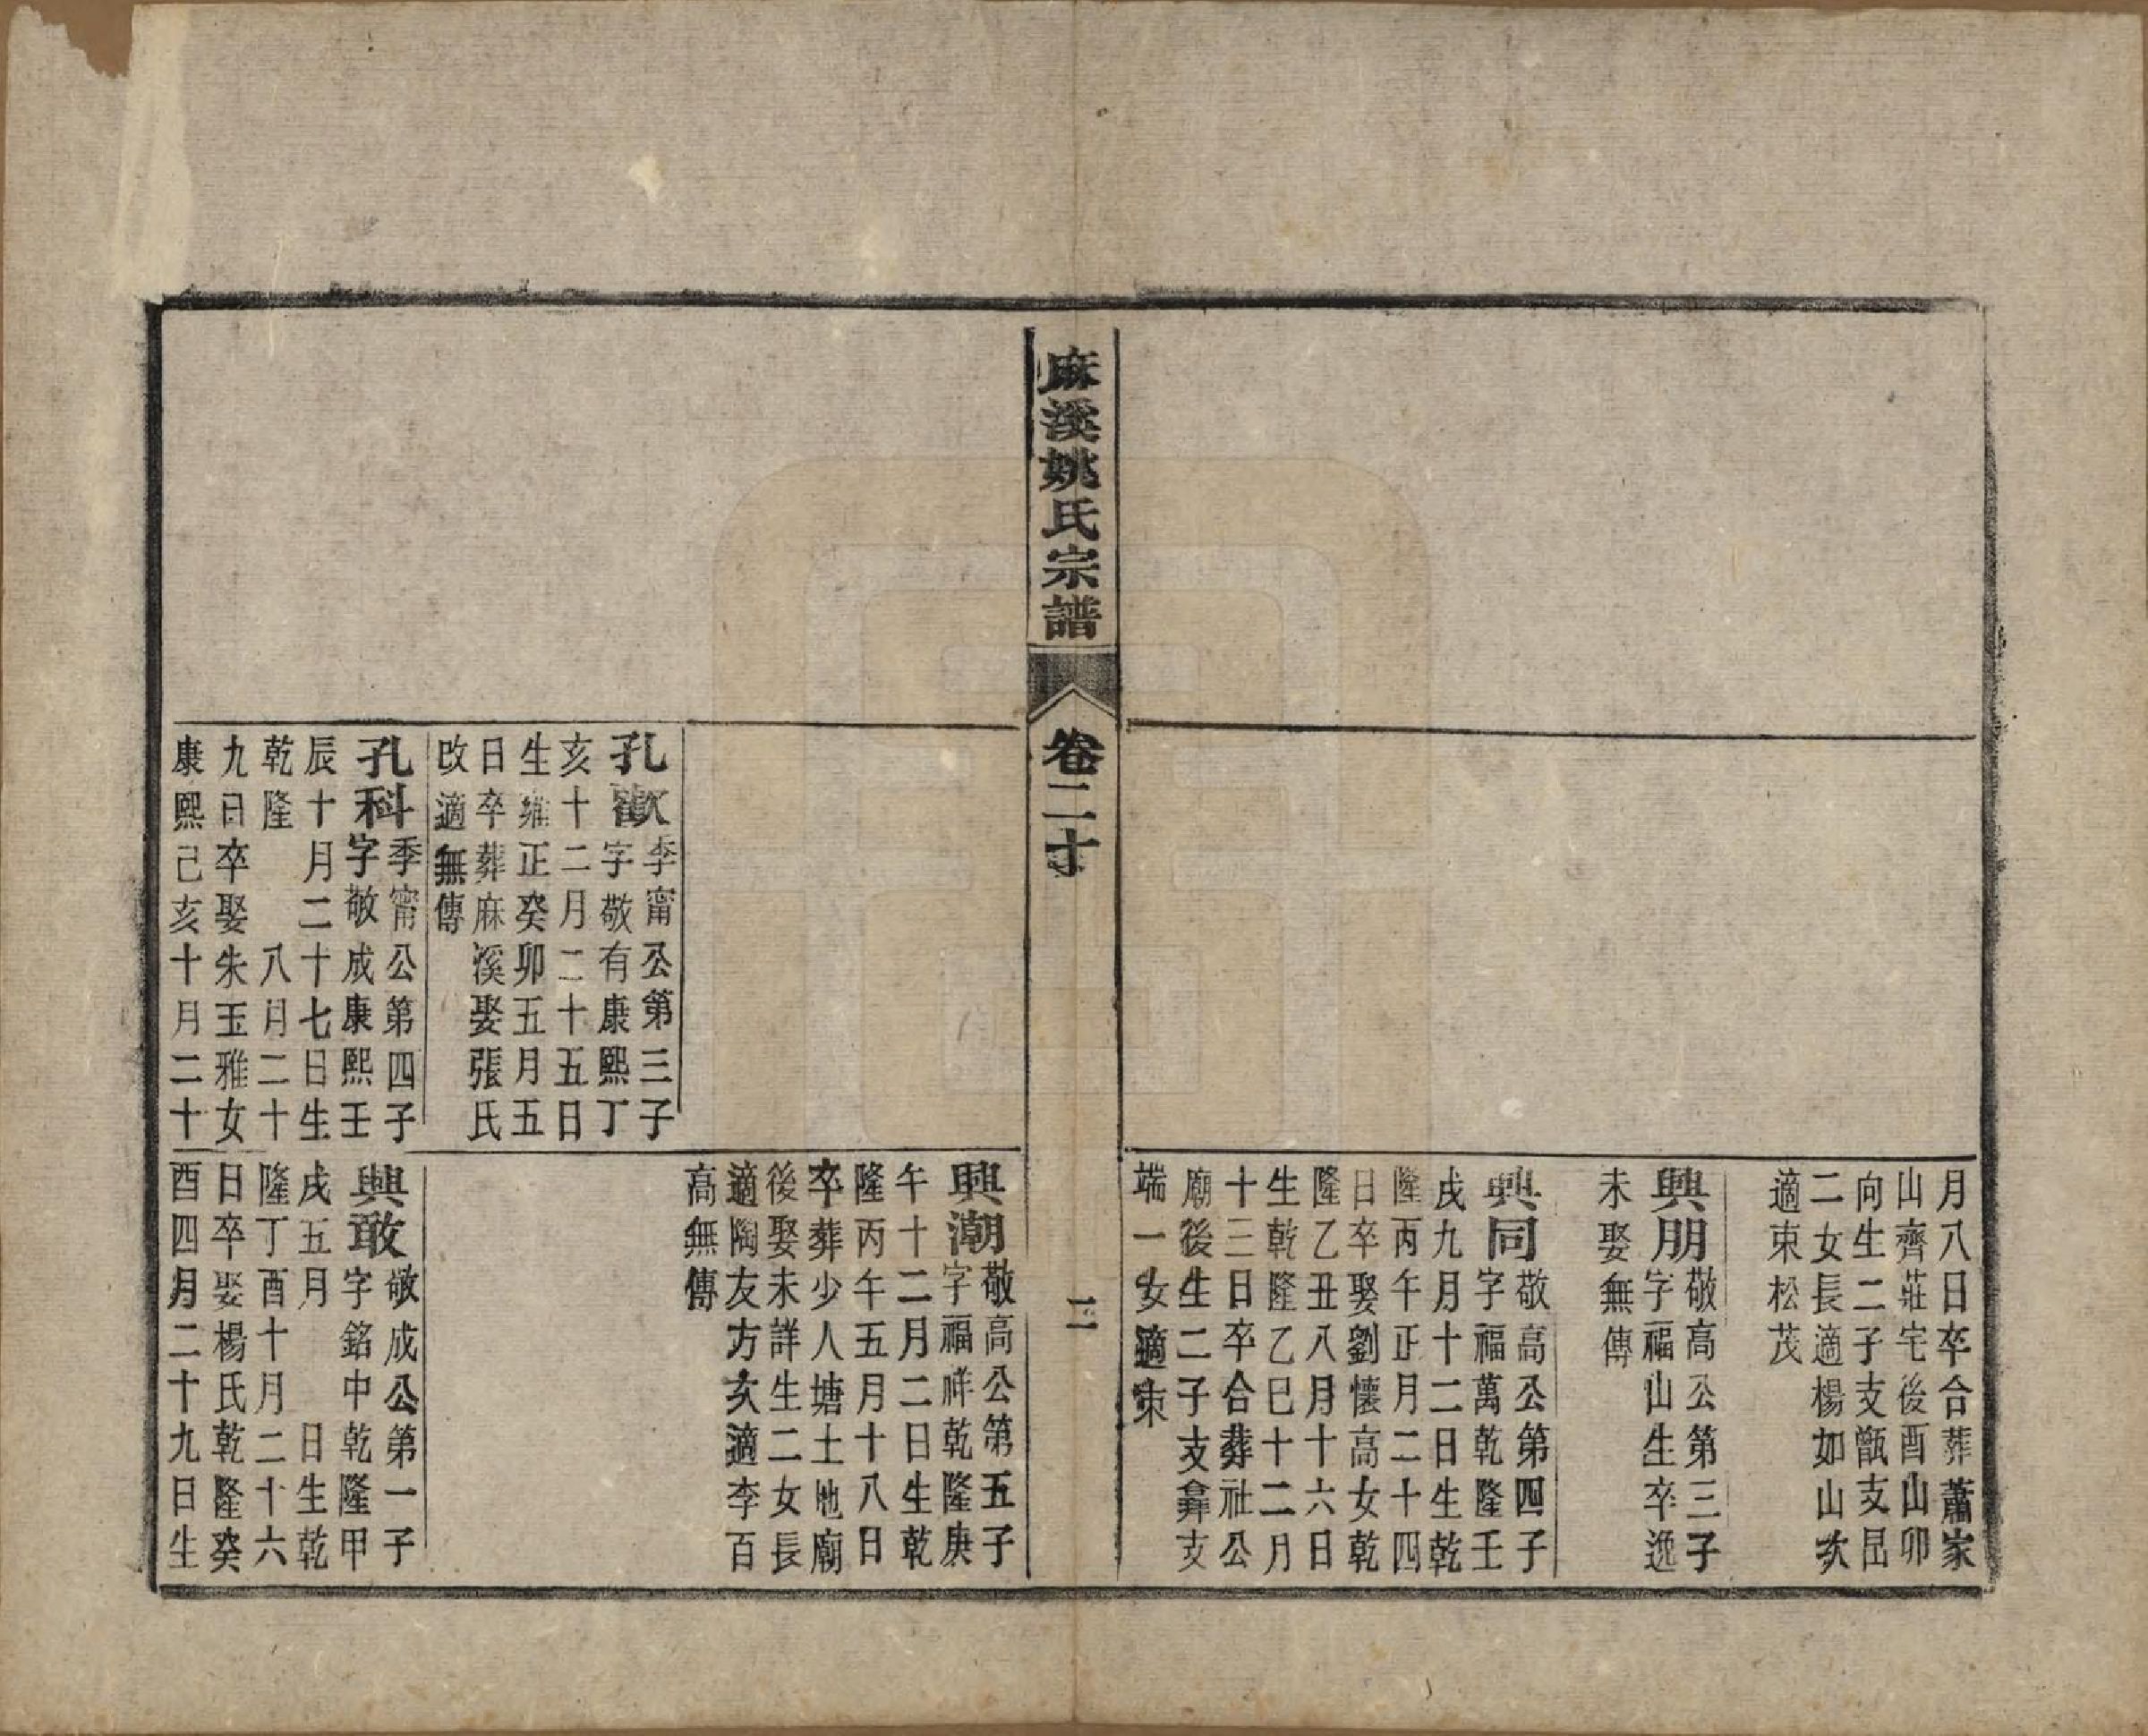 月八日卒合葬蕭家
山齊莊宅後酉山卯
向生二子支甑支昆
二女長適楊如山次
適束松茂
興朋敬高公第三子
字福山生卒逸
未娶無傳
興同敬高公第四子
字福萬乾隆壬
戌九月十二日生乾
隆丙午正月二十四
日卒娶劉懷高女乾
隆乙丑八月十六日
生乾隆乙巳十二月
十三日卒合葬社公
廟後生二子支弇支
端一女適束
麻溪姚氏宗譜
卷二十
二
興潮敬高公第五子
字福祥乾隆庚
午十二月二日生乾
隆丙午五月十八日
卒葬少人塘土地廟
後娶未詳生二女長
適陶友方次適李百
高無傳
孔歡季甯公第三子
字敬有康熙丁
亥十二月二十五日
生雍正癸卯五月五
日卒葬麻溪娶張氏
改適無傳
孔科季甯公第四子
字敬成康熙壬
辰十月二十七日生
乾隆 八月二十
九日卒娶朱玉雅女
康熙己亥十月二十
興敢敬成公第一子
字銘中乾隆甲
戌五月 日生乾
隆丁酉十月二十六
日卒娶楊氏乾隆癸
酉四月二十九日生